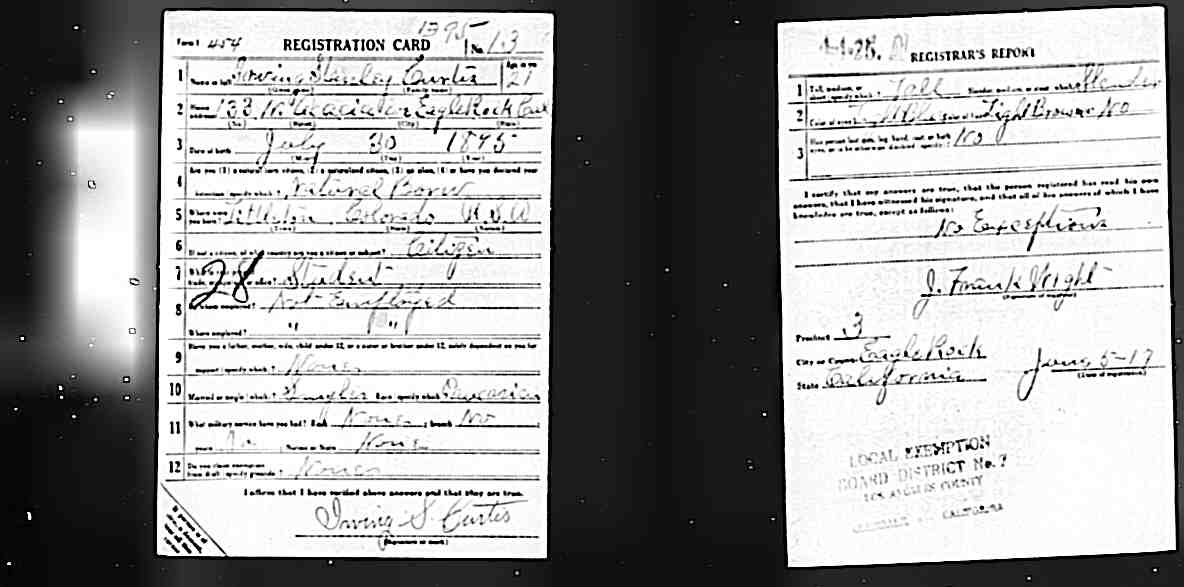 1395
Form 1 454 REGISTRATION CARD No. 13
1 Name in full Irving Stanley Curtis Age, in yrs. 21
(Given name) (Family name)
2 Home address 133 N. Eagle Rock Cal
(No.) (Street) (City) (State)
3 Date of birth July 30 1895
(Month) (Day) (Year)
Are you (1) a natural born citizen, (2) a naturalized citizen, (3) an alien, (4) or have you declared your
4 intention (specify which)? Natural Born
5 Where were you born? Littleton Colorado U.S.A
(Town) (State) (Nation)
6 If not a citizen, of what country are you a citizen or subject? Citizen
7 What is your present trade, occupation, or office? Student
28
8 By whom employed? Not Employed
Where employed? " "
9 Have you a father, mother, wife, child under 12, or a sister or brother under 12, solely dependent on you for
support (specify which)? None
10 Married or single (which)? Single Race (specify which)? Caucasian
11 What military service have you had? Rank None ; branch No ;
years No ; Nation or State None
12 Do you claim exemption from draft (specify grounds)? None
I affirm that I have verified above answers and that they are true.
Irving S. Curtis
(Signature or mark)
REGISTRAR'S REPORT
1 Tall, medium, or short (specify which)? Tall Slender, medium, or stout (which)? Slender
2 Color of eyes? Light Blue Color of hair? Light Brown No
3 Has person lost arm, leg, hand, foot, or both eyes, or is he otherwise disabled (specify)? No
I certify that my answers are true, that the person registered has read his own
answers, that I have witnessed his signature, and that all of his answers of which I have
knowledge are true, except as follows:
No Exceptions
J. Frank Wight
(Signature of registrar)
Precinct 3
City or County Eagle Rock
State California June 5-17
(Date of registration)
LOCAL EXEMPTION
BOARD DISTRICT No. 7
LOS ANGELES COUNTY
CALIFORNIA